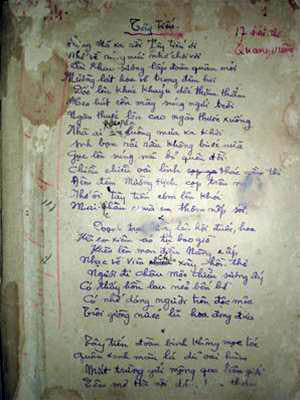 Tây Tiến
17 bài thơ
Sông Mã xa rồi Tây tiến ơi
Nhớ về rừng núi nhớ chơi vơi
Sài Khao sương lấp đoàn quân mỏi
Mường lát hoa về trong đêm hơi
Dốc lên khúc khuỷu dốc thăm thẳm
Heo hút cồn mây súng ngửi trời
Ngàn thước lên cao ngàn thước xuống
Nhà ai mưa xa khơi
Anh bạn dãi dầu không bước nữa
Gục lên súng mũ bỏ quên đời
Chiều chiều oai linh
Đêm đêm Mường hịch cọp trêu
Nhớ ôi Tây tiến cơm lên khói
Mai Châu mùa em thơm nếp xôi
Doanh trại lên hội đuốc hoa
Kìa em xiêm áo tự bao giờ
Khèn lên man điệu nàng e ấp
Nhạc về Viên xây hồn thơ
Người đi Châu mộc chiều sương ấy
Có thấy hồn lau nẻo bến bờ
Có nhớ dáng người trên độc mộc
Trôi giòng nước lũ hoa đong đưa
Tây tiến đoàn binh không mọc tóc
Quân xanh màu lá dữ oai hùm
Mắt trừng gửi mộng qua biên giới
Đêm mơ Hà nội thơm